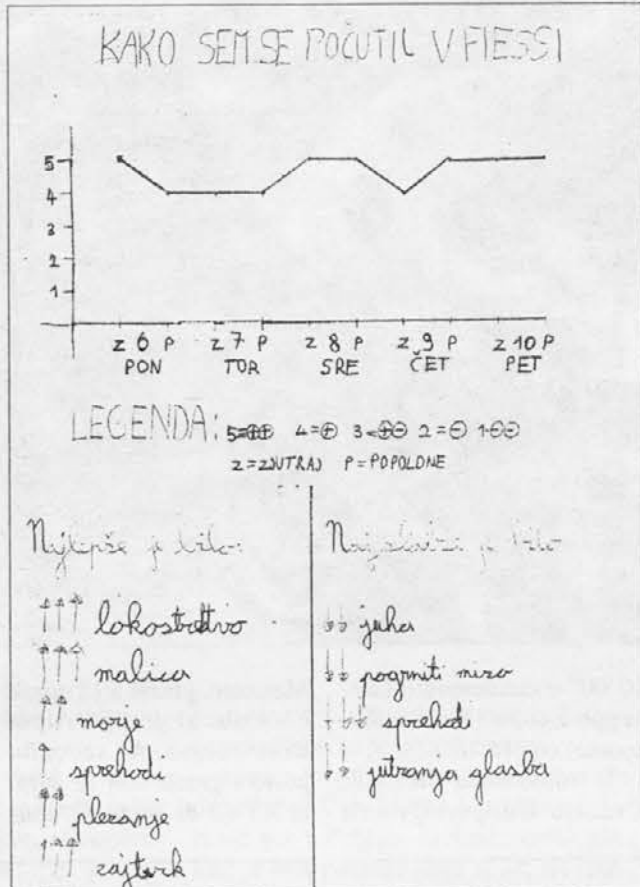 KAKO SEM SE POČUTIL V FIESSI
5
4
3
2
1
Z 6 P Z 7 P Z 8 P Z 9 P Z 10 P
PON TOR SRE ČET PET
LEGENDA: 5=⊕⊕ 4=⊕ 3=⊕⊖ 2=⊖ 1=⊖⊖
Z=ZJUTRAJ P=POPOLDNE
Najlepše je bilo:
lokostrelstvo
malica
morje
sprehodi
plezanje
zajtrk
Najslabše je bilo
juha
pogrniti mizo
sprehodi
jutranja glasba